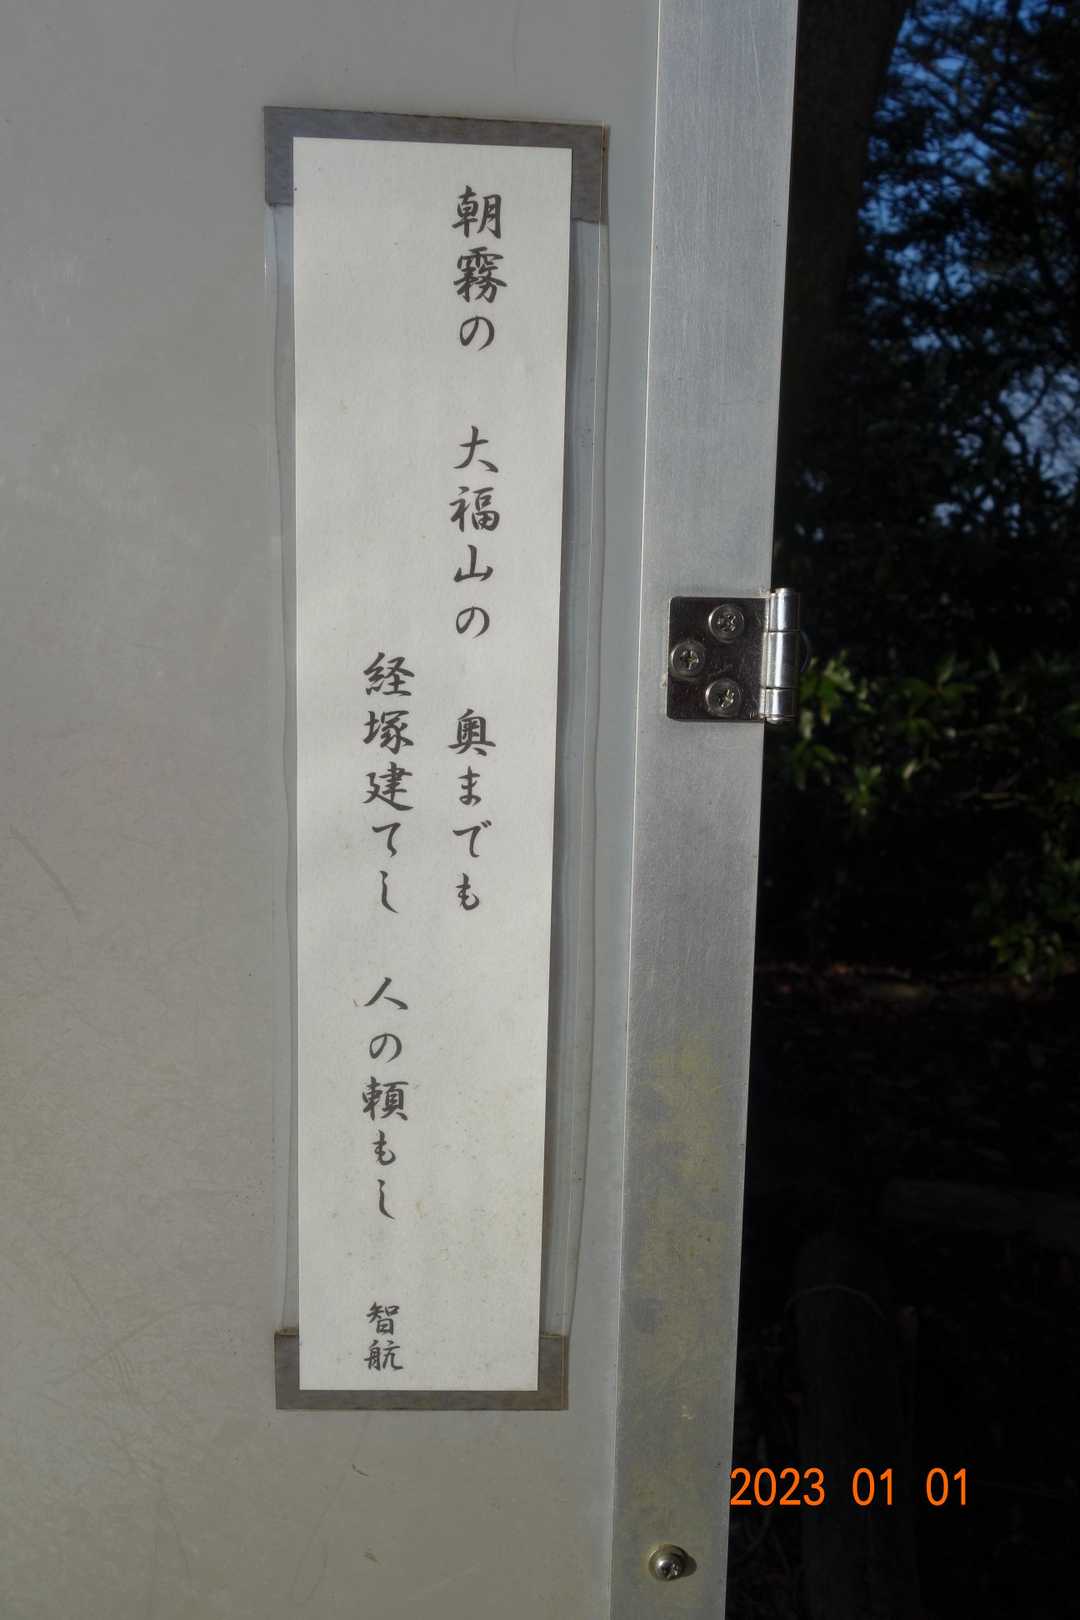 朝霧の 大福山の 奥までも
経塚建てし 人の頼もし 智航
2023 01 01